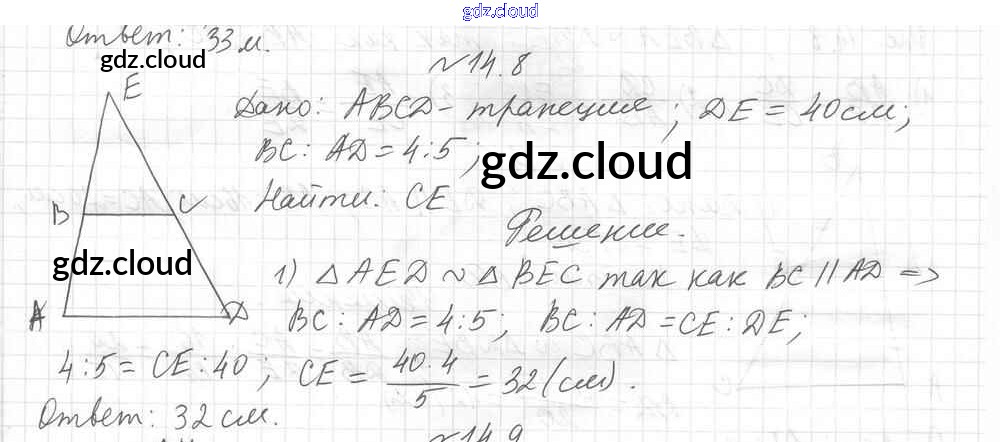 gdz.cloud
Ответ: 33 м.
gdz.cloud
№14.8
E
Дано: ABCD - трапеция; DE = 40 см;
BC : AD = 4:5;
gdz.cloud
Найти: CE
B C
Решение.
gdz.cloud
1) △ AED ~ △ BEC так как BC || AD =>
A D
BC : AD = 4:5; BC : AD = CE : DE;
4:5 = CE : 40; CE = 40·4/5 = 32 (см).
Ответ: 32 см.
№14.9